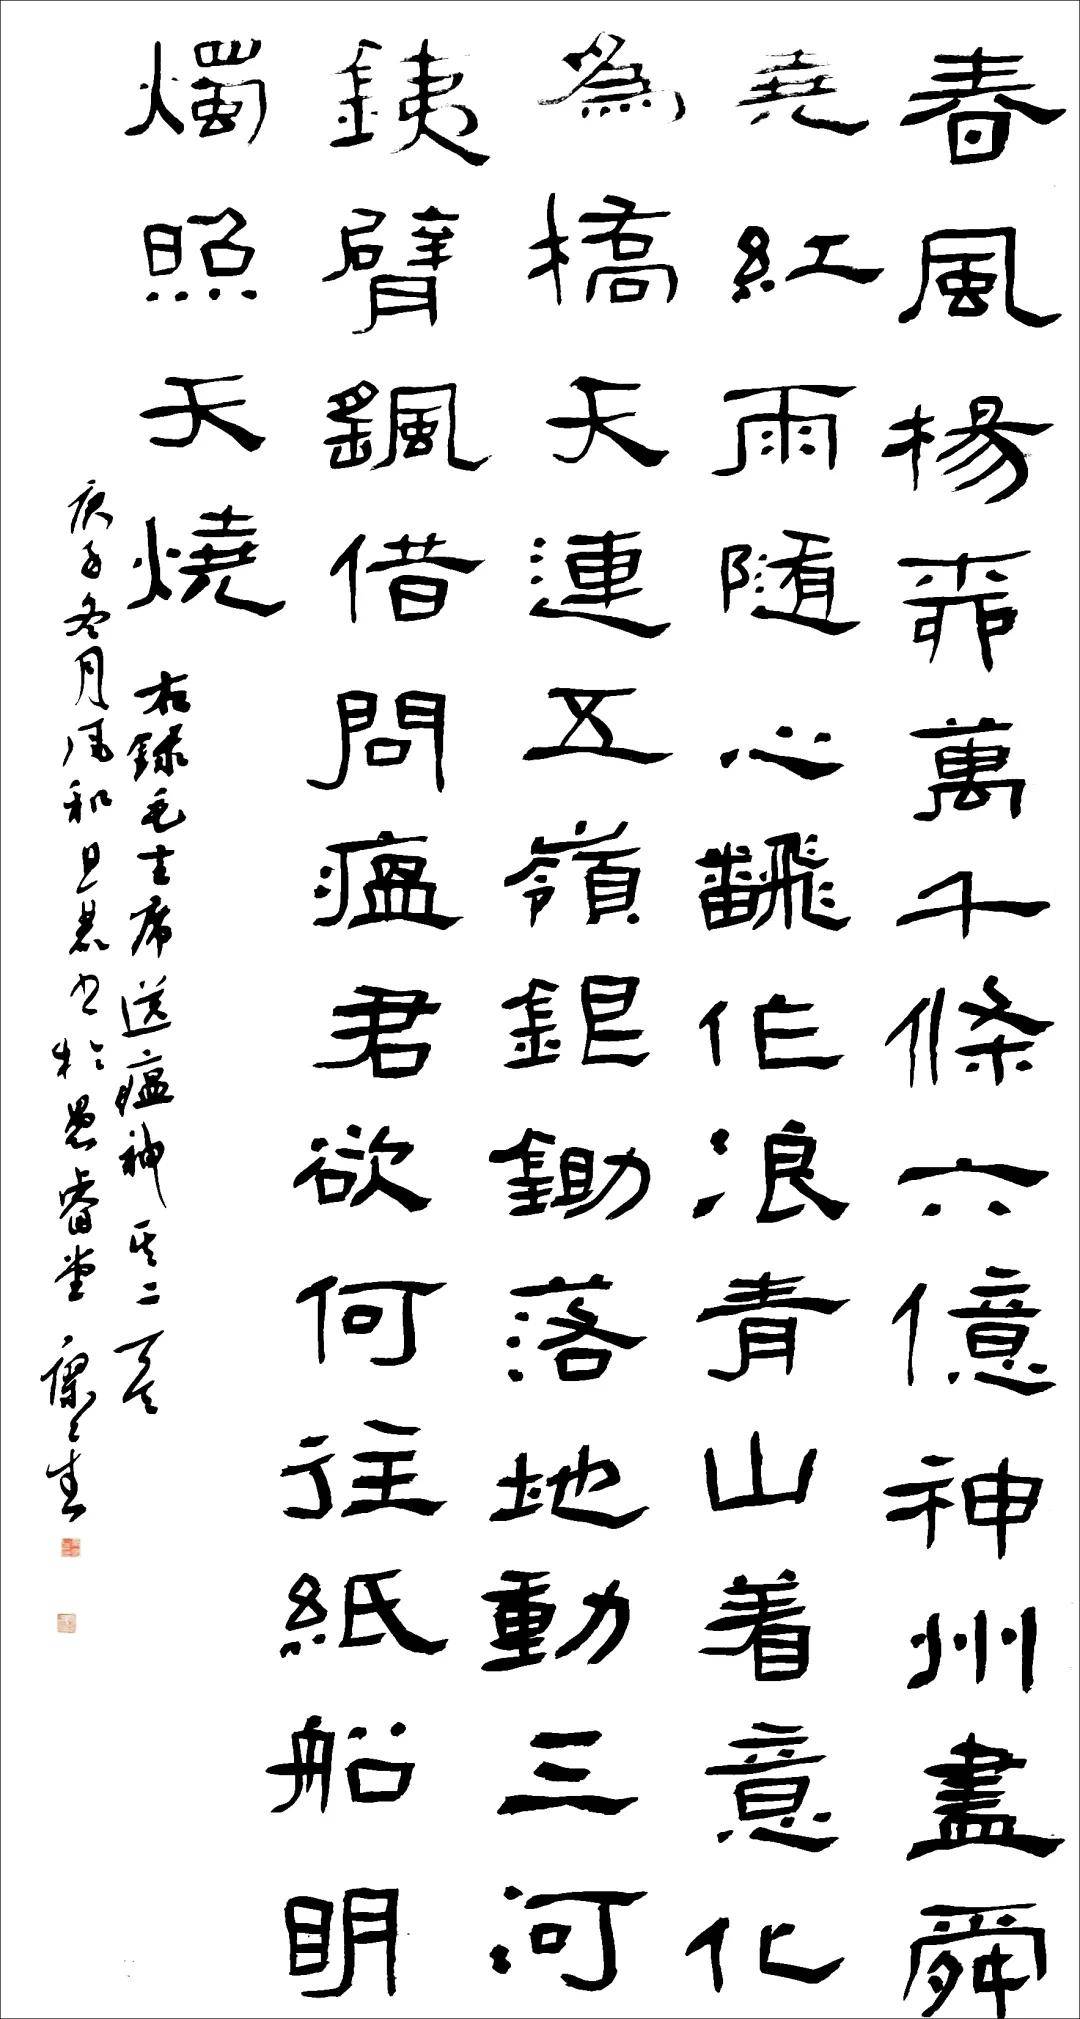 春風楊柳萬千條六億神州盡舜
堯紅雨隨心飜作浪青山着意化
為橋天連五嶺銀鋤落地動三河
銕臂颻借問瘟君欲何往紙船明
燭照天燒
右錄毛主席送瘟神其二一首
庚子冬月風和日晨书於愚睿堂